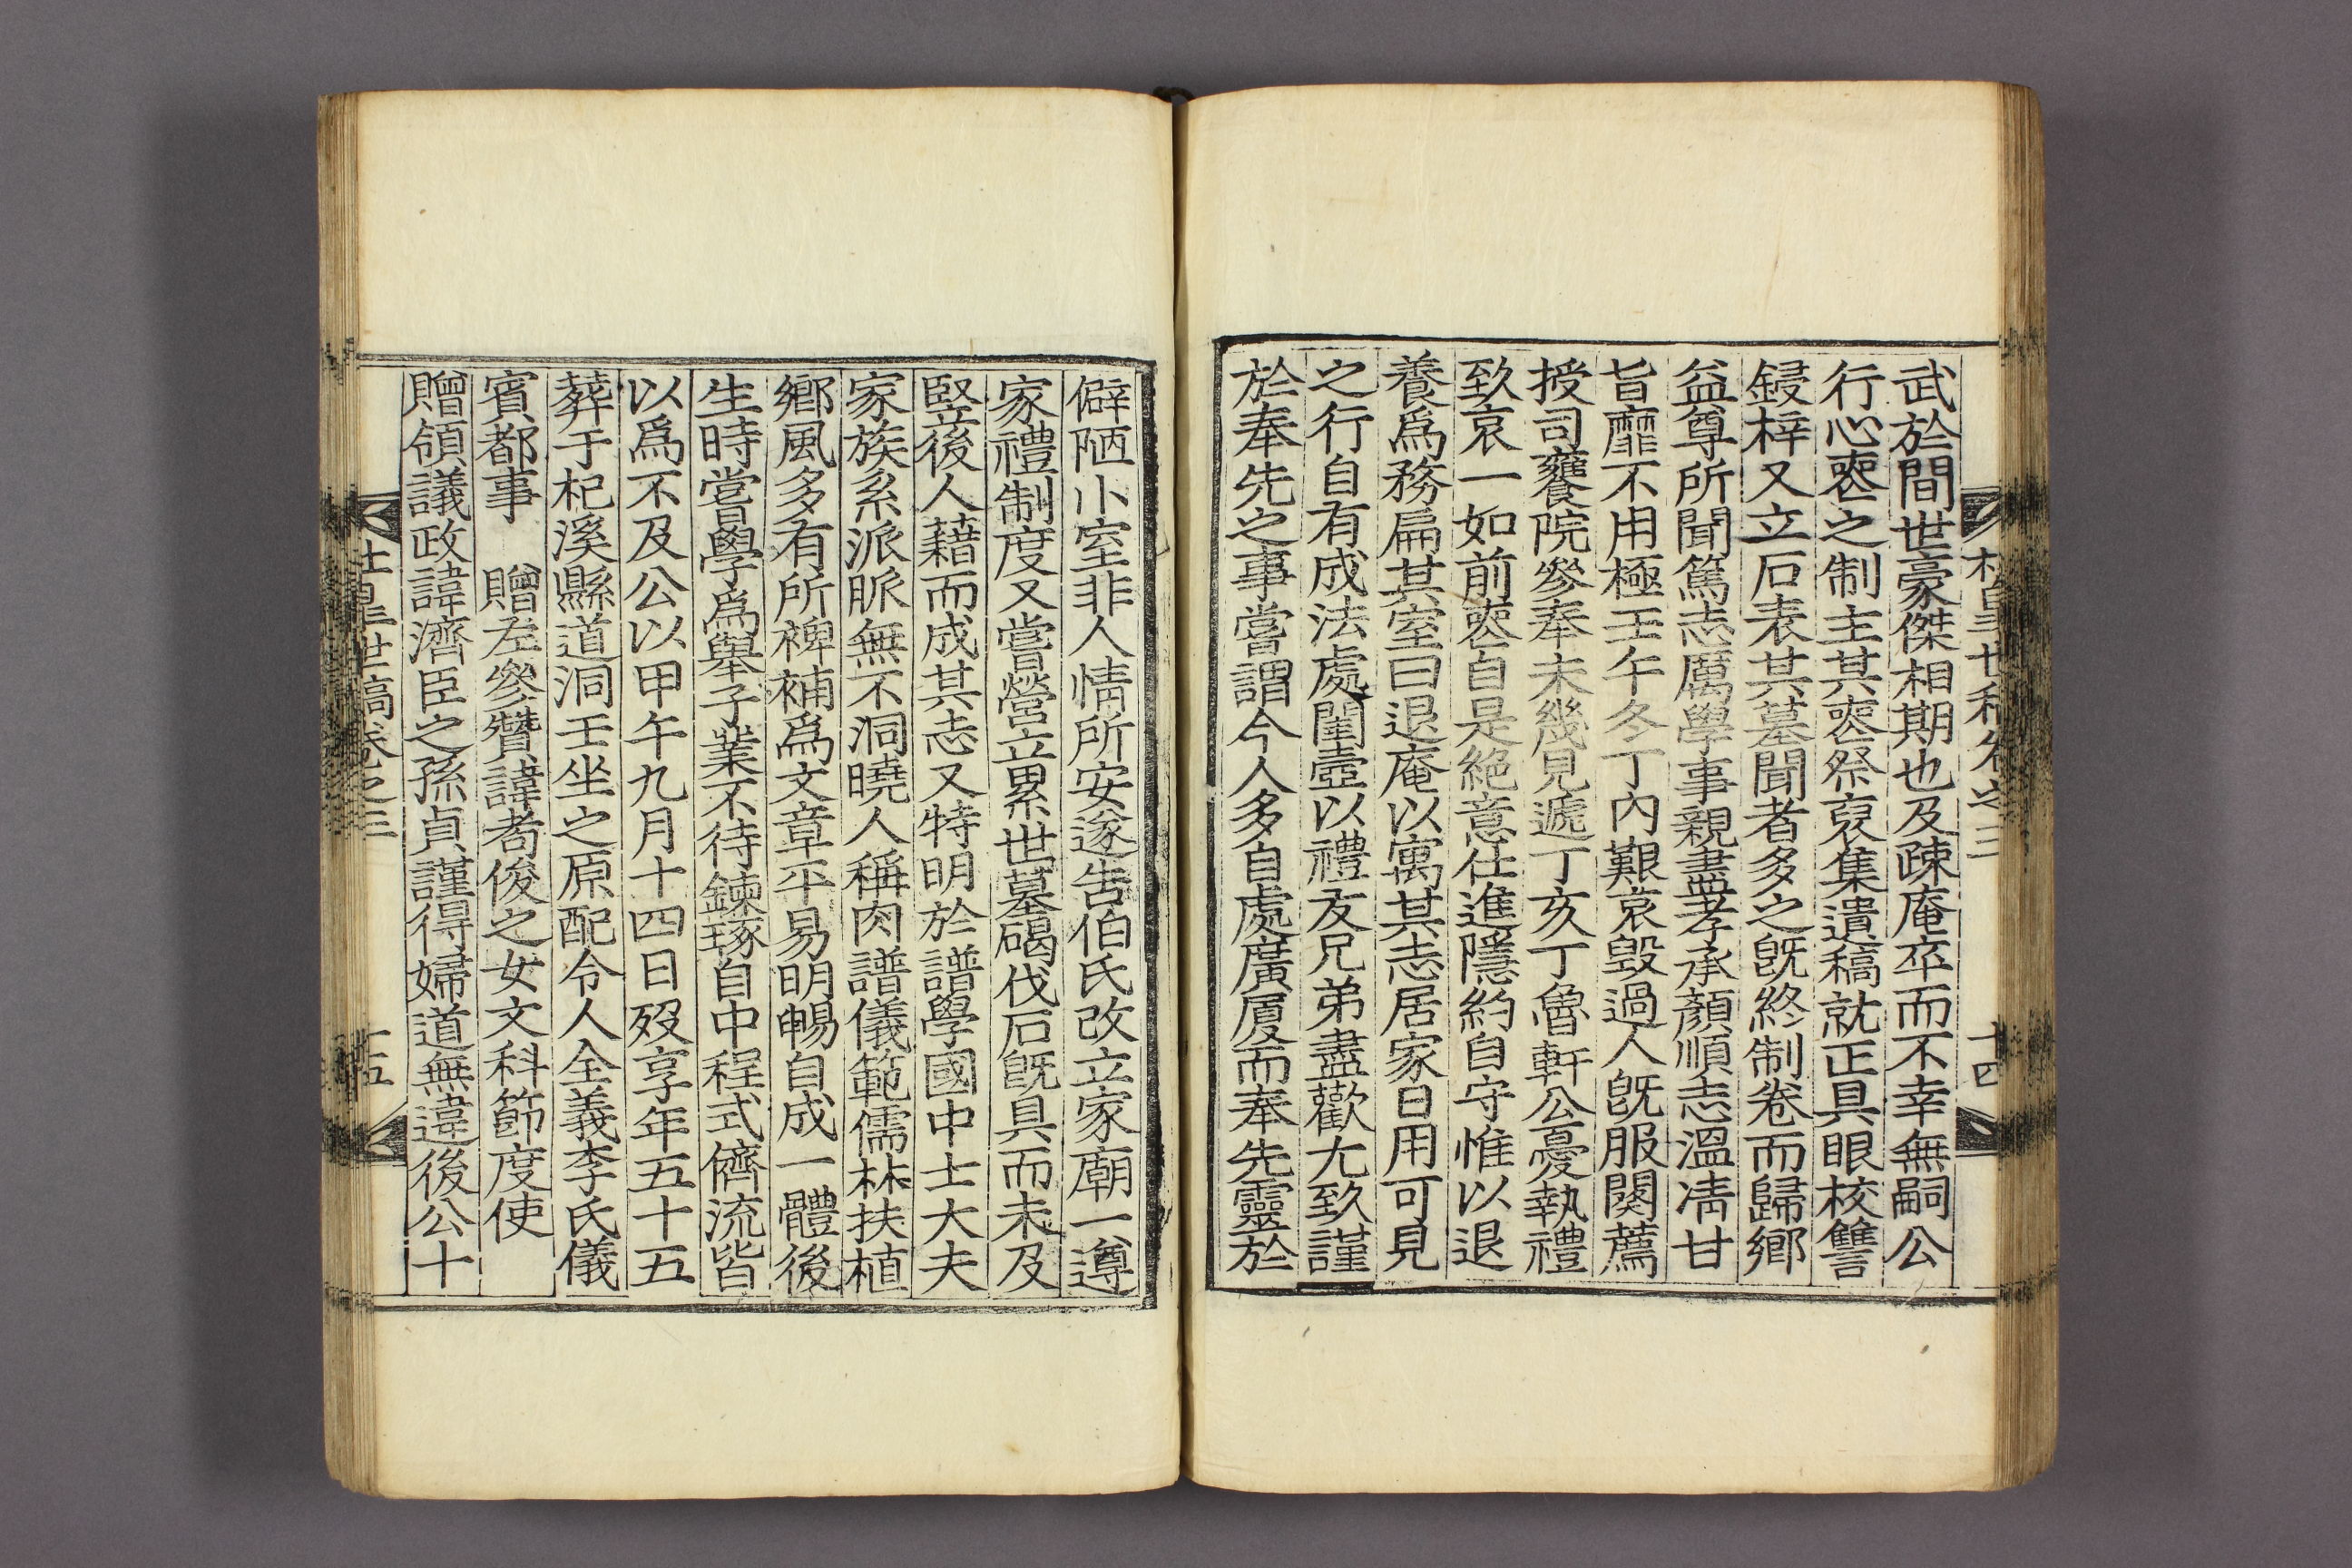 武於間世豪傑相期也及疎庵卒而不幸無嗣公
行心喪之制主其喪祭裒集遺稿就正具眼校讐
鋟梓又立石表其墓聞者多之旣終制卷而歸鄉
益尊所聞篤志厲學事親盡孝承顏順志溫凊甘
旨靡不用極壬午冬丁內艱哀毀過人旣服闋薦
授司饔院參奉未幾見遞丁亥丁魯軒公憂執禮
致哀一如前喪自是絕意仕進隱約自守惟以退
養爲務扁其室曰退庵以寓其志居家日用可見
之行自有成法處閨壼以禮友兄弟盡歡尤致謹
於奉先之事嘗謂今人多自處廣厦而奉先靈於
僻陋小室非人情所安遂告伯氏改立家廟一遵
家禮制度又嘗營立累世墓碣伐石旣具而未及
竪後人藉而成其志又特明於譜學國中士大夫
家族系派脈無不洞曉人稱肉譜儀範儒林扶植
鄉風多有所裨補爲文章平易明暢自成一體後
生時嘗學爲擧子業不待鍊琢自中程式儕流皆
以爲不及公以甲午九月十四日歿享年五十五
葬于杞溪縣道洞壬坐之原配令人全義李氏儀
賓都事　贈左參贊諱耉俊之女文科節度使
贈領議政諱濟臣之孫貞謹得婦道無違後公十
世稿卷之三
十五